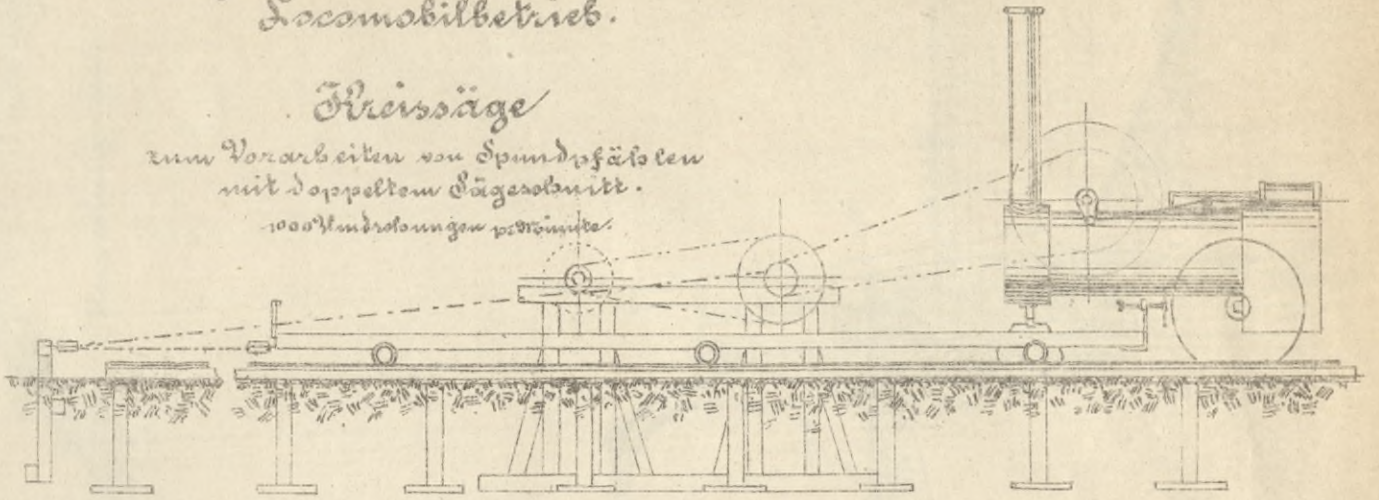 Locomobilbetrieb.
Kreissäge
zum Vorarbeiten von Spundpfählen
mit doppeltem Sägeschnitt.
1000 Umdrehungen pr. Minute.